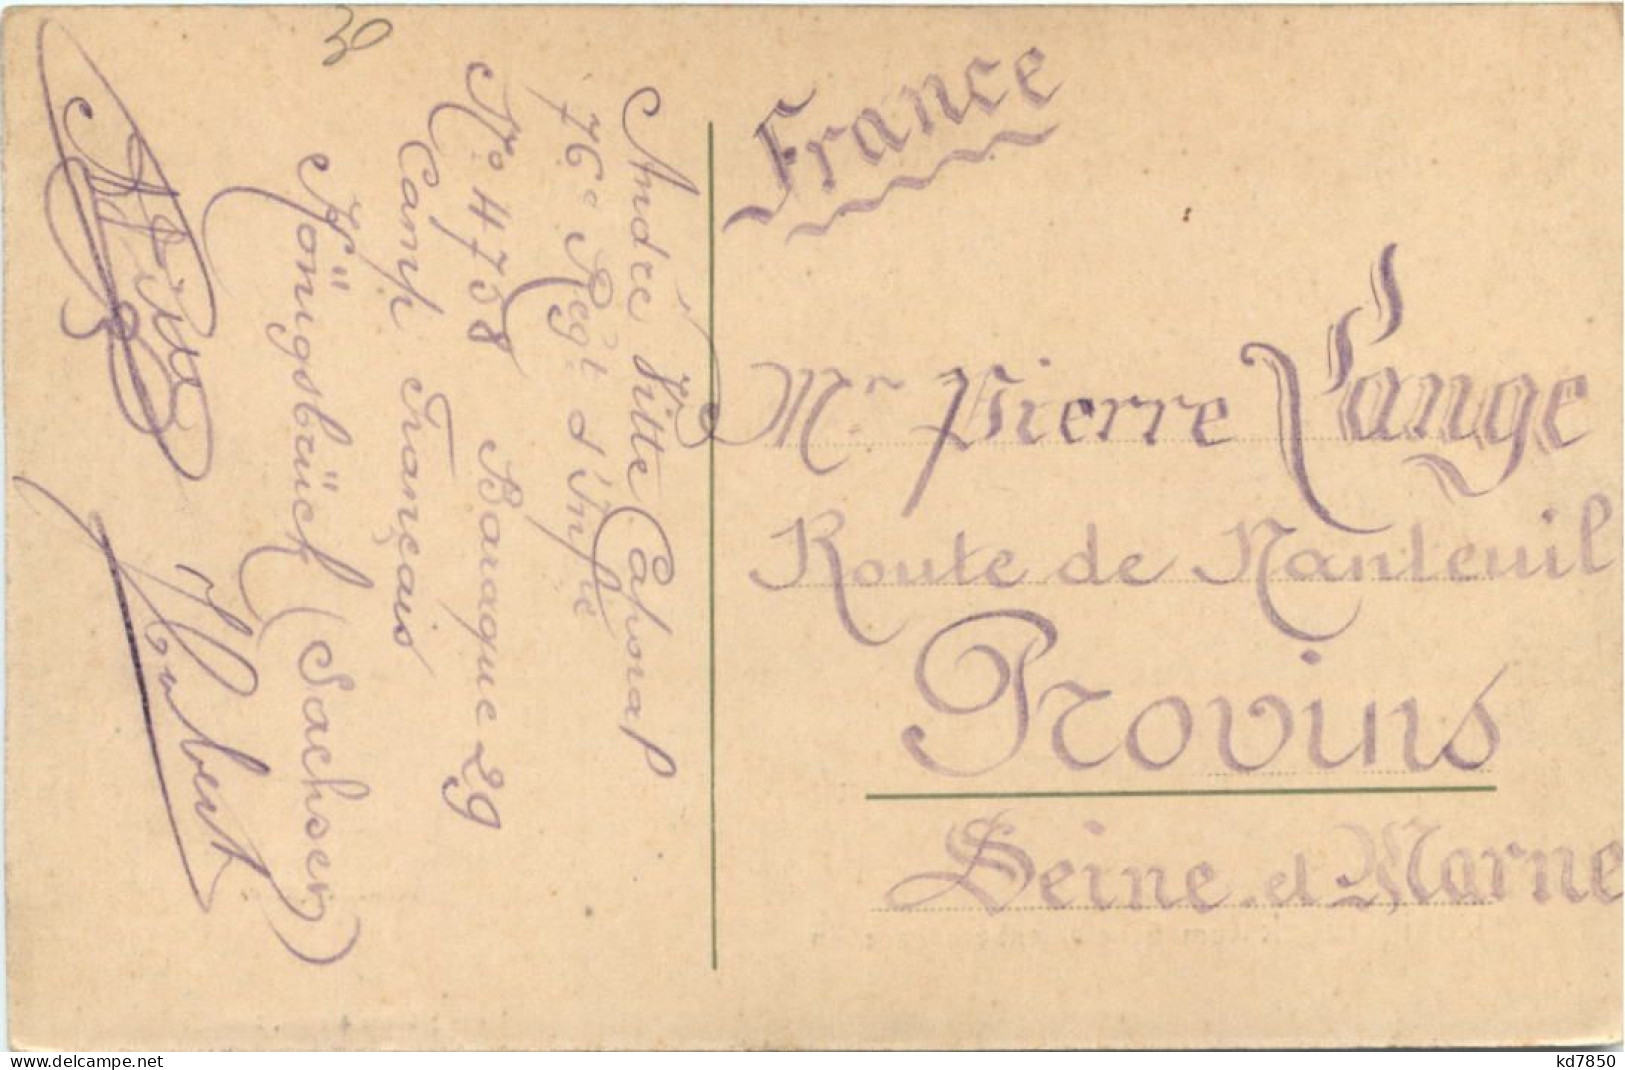 30
André Vitte Caporal
76e Régt d'Infie
No 4738 Baraque 29
Camp Français
Königsbrück (Sachsen)
France
Mr Pierre Lange
Route de Nanteuil
Provins
Seine et Marne
www.delcampe.net
kd7850